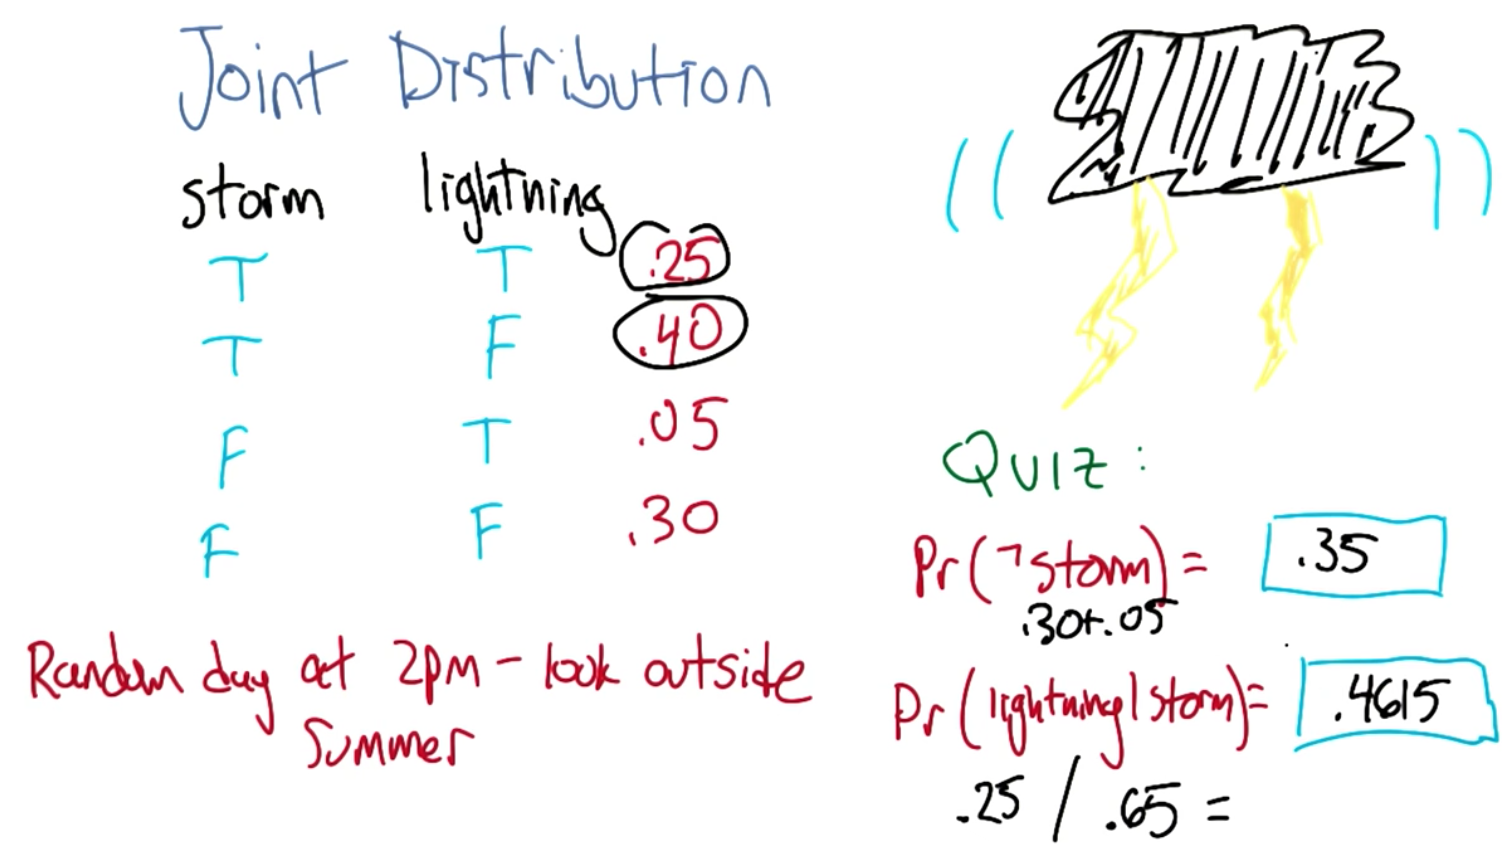 Joint Distribution
storm lightning
T T .25
T F .40
F T .05
F F .30
Random day at 2pm - look outside
Summer
Quiz:
Pr(¬storm) = .35
.30+.05
Pr(lightning|storm)= .4615
.25 / .65 =